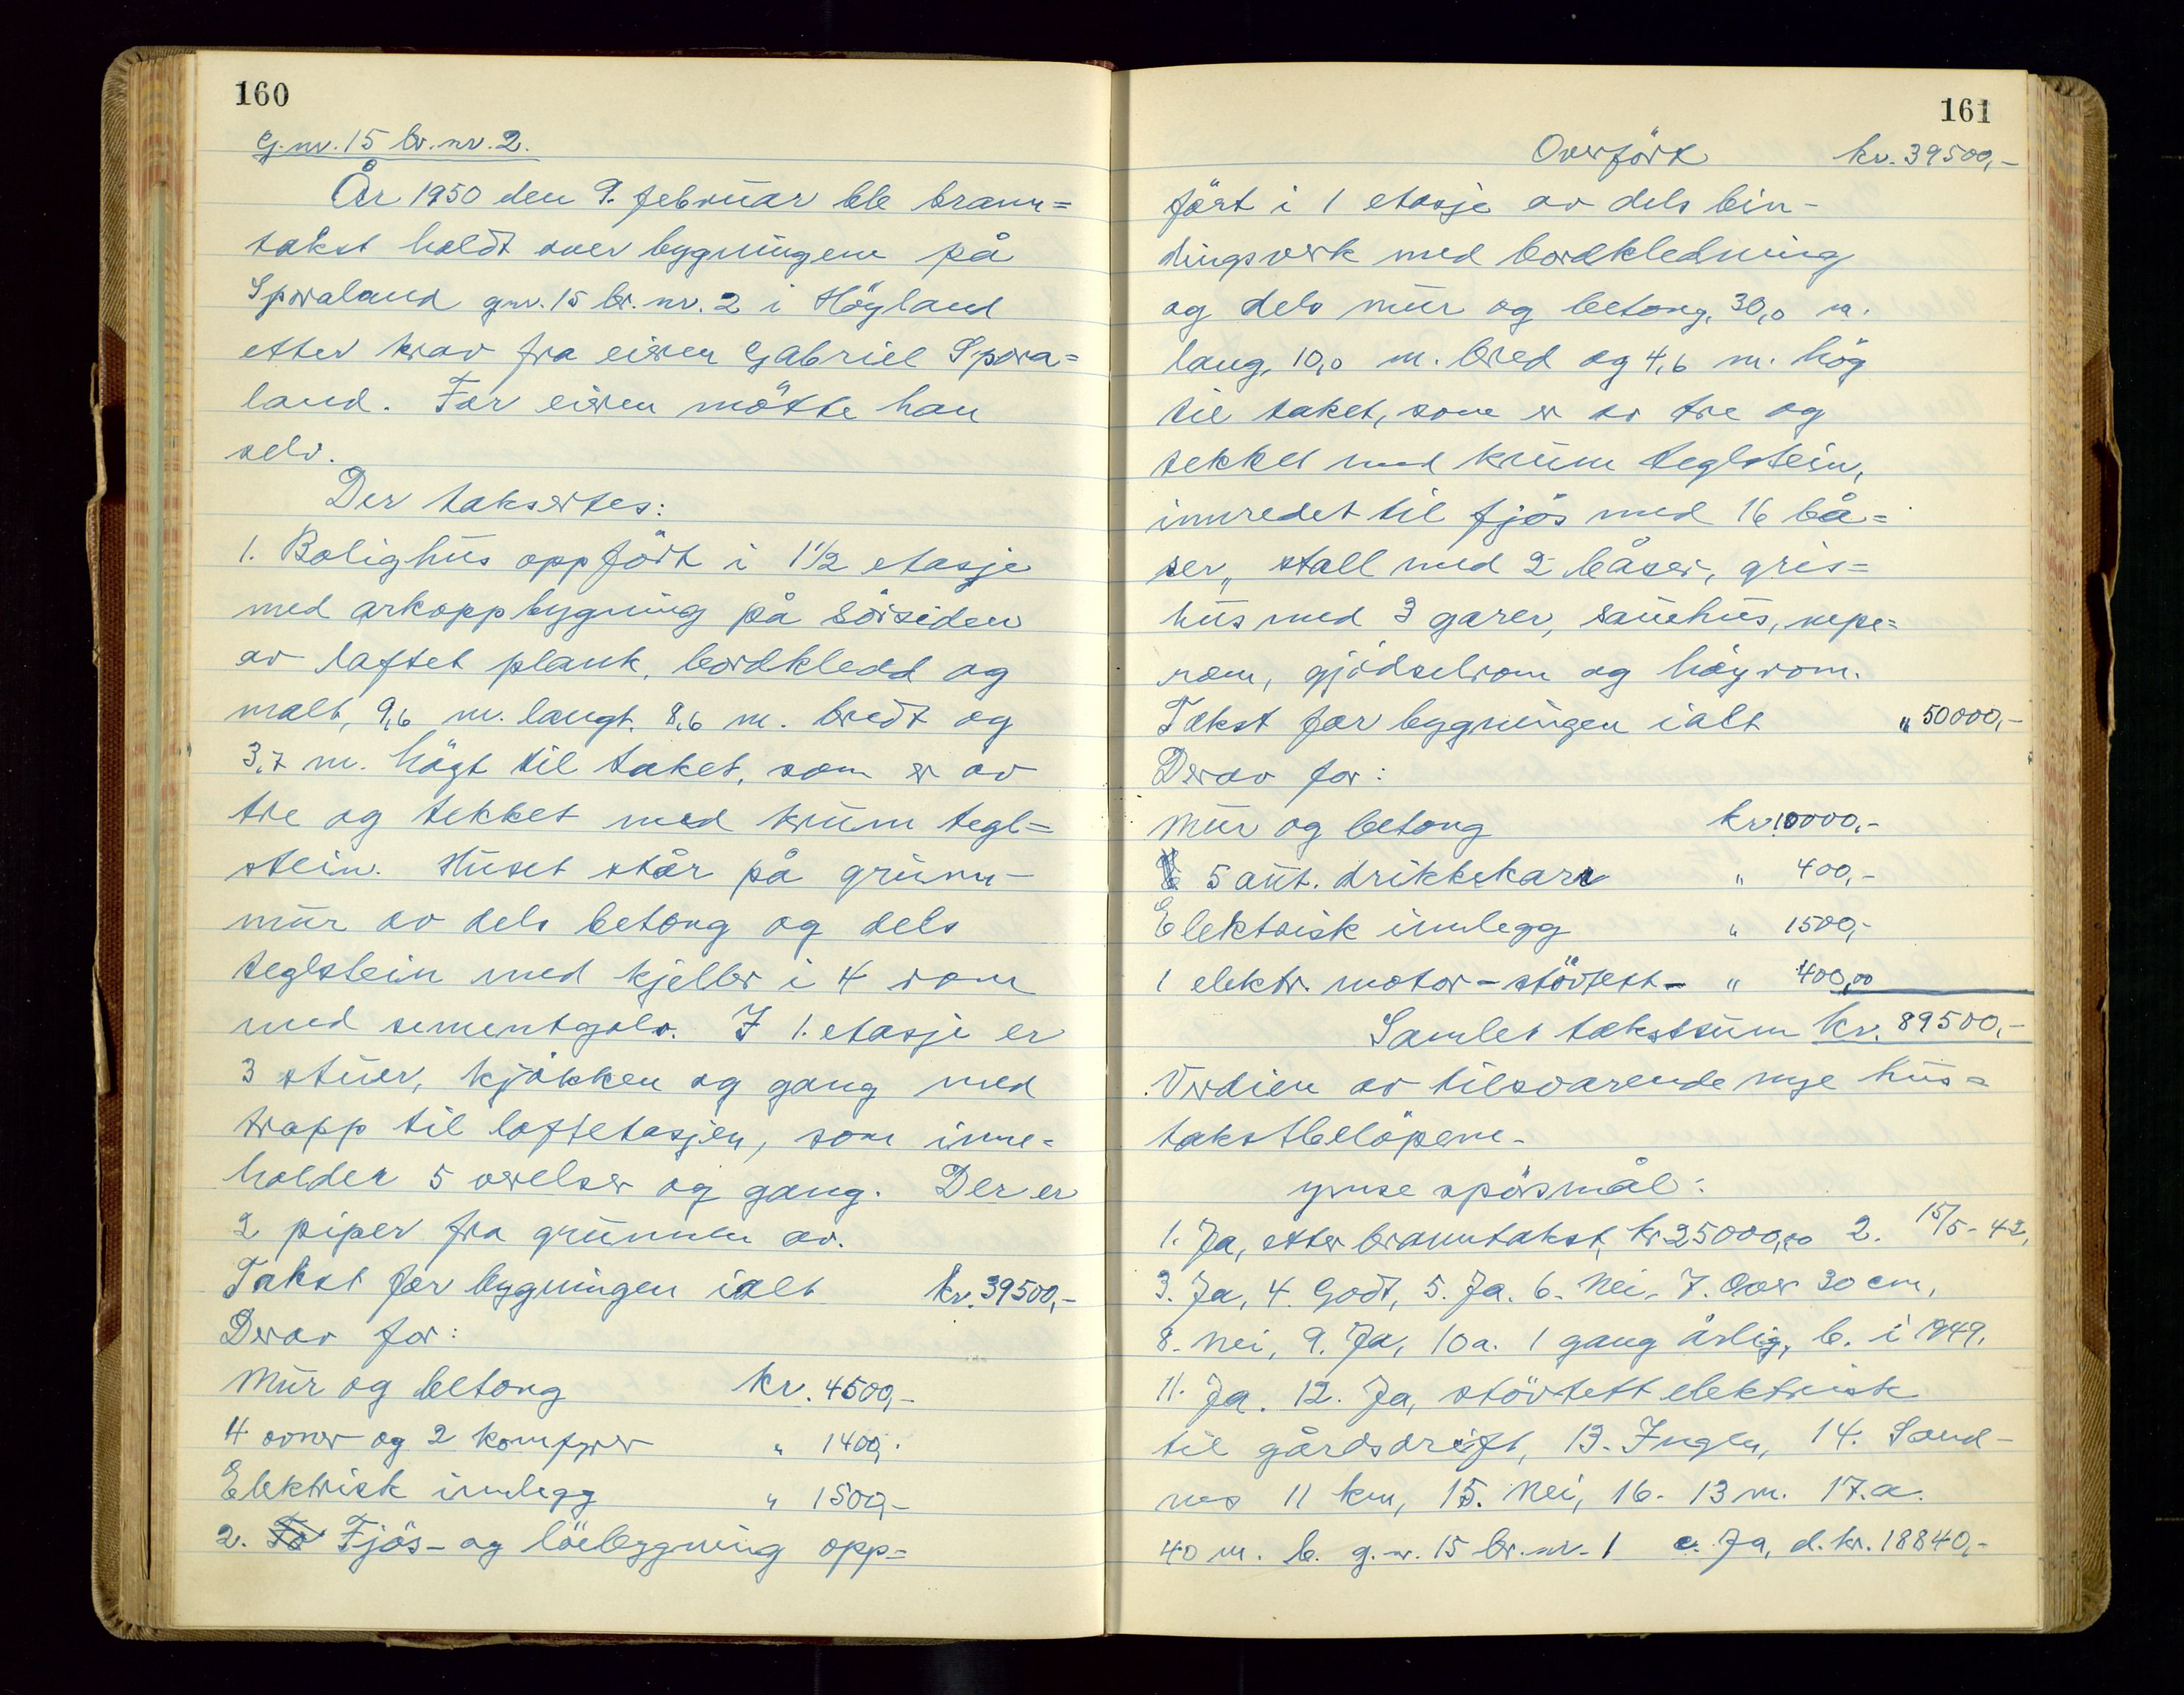 160
G.nr. 15 br.nr. 2.
År 1950 den 9. februar ble brann=
takst holdt over bygningene på
Sporaland gnr. 15 br.nr. 2 i Höyland
etter krav fra eieren Gabriel Spora=
land. For eieren mötte han
selv.
Der taksertes:
1. Bolighus oppfört i 1 1/2 etasje
med arkoppbygning på sörsiden
av laftet plank, bordkledd og
malt, 9,6 m. langt, 8,6 m. bredt og
3,7 m. högt til taket, som er av
tre og tekket med krum tegl=
stein. Huset står på grunn-
mur av dels betong og dels
teglstein med kjeller i 4 rom
med sementgolv. I 1. etasje er
3 stuer, kjökken og gang med
trapp til loftetasjen, som inne=
holder 5 værelser og gang. Der er
2 piper fra grunnen av.
Takst for bygningen ialt kr. 39500,-
Derav for:
Mur og betong kr. 4500,-
4 ovner og 2 komfyrer " 1400,-
Elektrisk innlegg " 1500,-
2. Fjös- og löebygning opp=
161
Overfört kr. 39500,-
fört i 1 etasje av dels bin-
dingsverk med bordkledning
og dels mur og betong, 30,0 m.
lang, 10,0 m. bred og 4,6 m. hög
til taket, som er av tre og
tekket med krum teglstein,
innredet til fjös med 16 bå=
ser, stall med 2 båser, gris=
hus med 3 garer, sauehus, nepe=
rom, gjödselrom og höyrom.
Takst for bygningen ialt " 50000,-
Derav for:
Mur og betong kr. 10000,-
5 aut. drikkekar " 400,-
Elektrisk innlegg " 1500,-
1 elektr. motor - stövtett - " 400,00
Samlet takstsum kr. 89500,-
Verdien av tilsvarende nye hus=
takstbelöpene.
ymse spörsmål:
1. Ja, etter branntakst, kr 25000,00 2. 15/5-42,
3. Ja, 4. Godt, 5. Ja. 6. Nei, 7. Over 30 cm,
8. Nei, 9. Ja, 10a. 1 gang årlig, b. i 1949.
11. Ja. 12. Ja, stövtett elektrisk
til gårdsdrift, 13. Ingen, 14. Sand-
nes 11 km, 15. Nei, 16. 13 m. 17. a.
40 m. b. g.nr. 15 br.nr. 1 c. Ja, d. kr. 18840,-